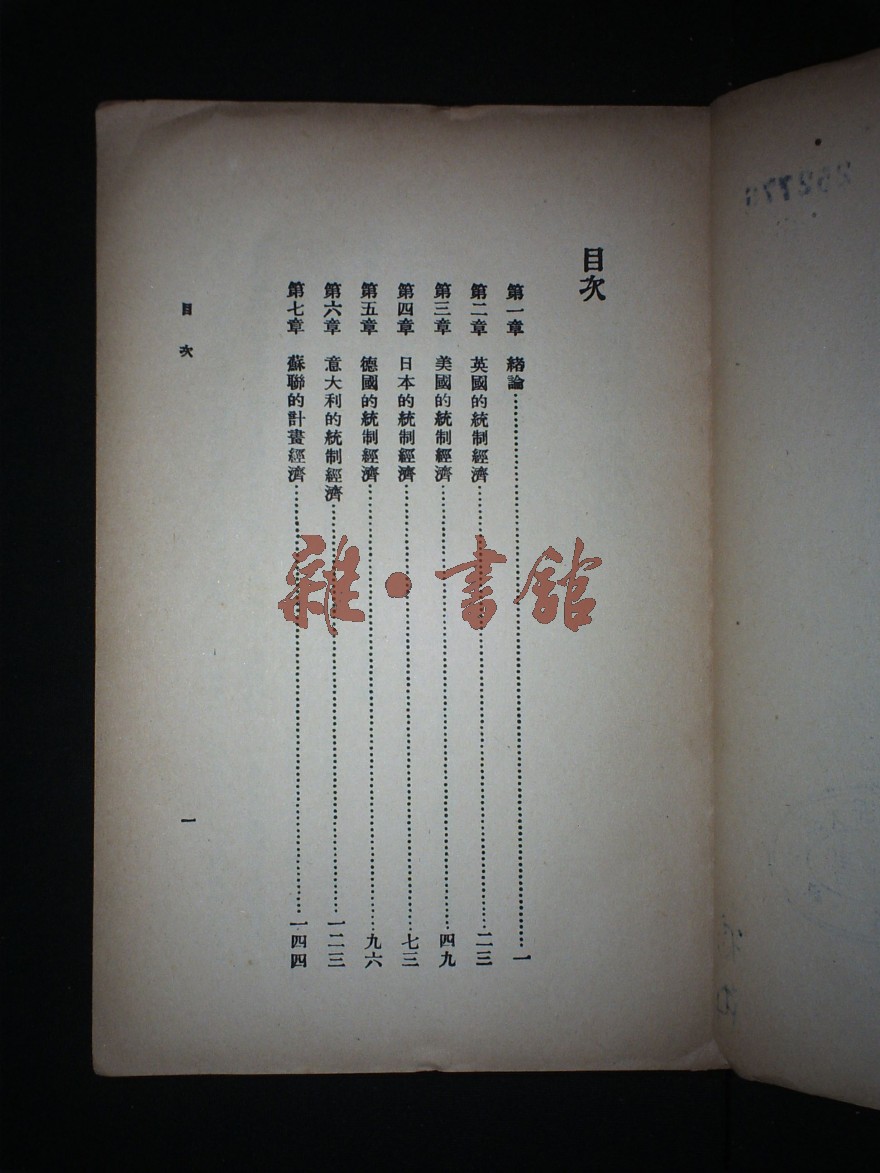 目次
第一章 緒論……一
第二章 英國的統制經濟……二三
第三章 美國的統制經濟……四九
第四章 日本的統制經濟……七三
第五章 德國的統制經濟……九六
第六章 意大利的統制經濟……一二三
第七章 蘇聯的計畫經濟……一四四
目次
一
雜·書館